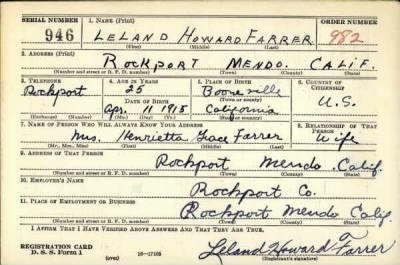 SERIAL NUMBER 1. NAME (Print) ORDER NUMBER
946 LELAND HOWARD FARRER 982
(First) (Middle) (Last)
2. ADDRESS (Print)
ROCKPORT MENDO. CALIF.
(Number and street or R. F. D. number) (Town) (County) (State)
3. TELEPHONE 4. AGE IN YEARS 5. PLACE OF BIRTH 6. COUNTRY OF CITIZENSHIP
Rockport 25 Booneville
DATE OF BIRTH (Town or county) U.S.
Apr. 11 1915 California
(Exchange) (Number) (Mo.) (Day) (Yr.) (State or country)
7. NAME OF PERSON WHO WILL ALWAYS KNOW YOUR ADDRESS 8. RELATIONSHIP OF THAT PERSON
Mrs. Henrietta Grace Farrer Wife
(Mr., Mrs., Miss) (First) (Middle) (Last)
9. ADDRESS OF THAT PERSON
Rockport Mendo. Calif.
(Number and street or R. F. D. number) (Town) (County) (State)
10. EMPLOYER'S NAME
Rockport Co.
11. PLACE OF EMPLOYMENT OR BUSINESS
Rockport Mendo Calif.
(Number and street or R. F. D. number) (Town) (County) (State)
I AFFIRM THAT I HAVE VERIFIED ABOVE ANSWERS AND THAT THEY ARE TRUE.
REGISTRATION CARD Leland Howard Farrer
D. S. S. Form 1 (over) 16—17105 (Registrant's signature)